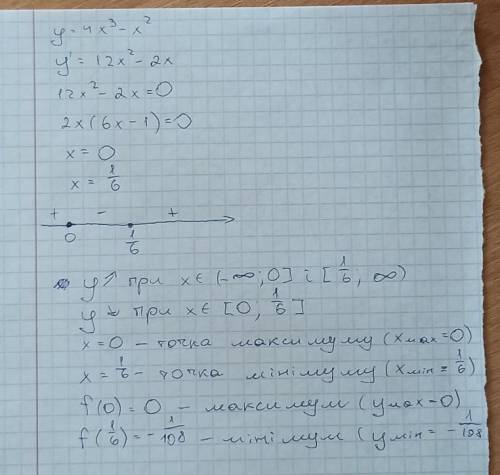 y = 4x³ - x²
y' = 12x² - 2x
12x² - 2x = 0
2x(6x - 1) = 0
x = 0
x = 1/6
+ - +
0 1/6
y ↗ при x ∈ (-∞; 0] і [1/6, ∞)
y ↘ при x ∈ [0, 1/6]
x = 0 - точка максимуму (xмах = 0)
x = 1/6 - точка мінімуму (xмін = 1/6)
f(0) = 0 - максимум (yмах = 0)
f(1/6) = -1/108 - мінімум (yмін = -1/108